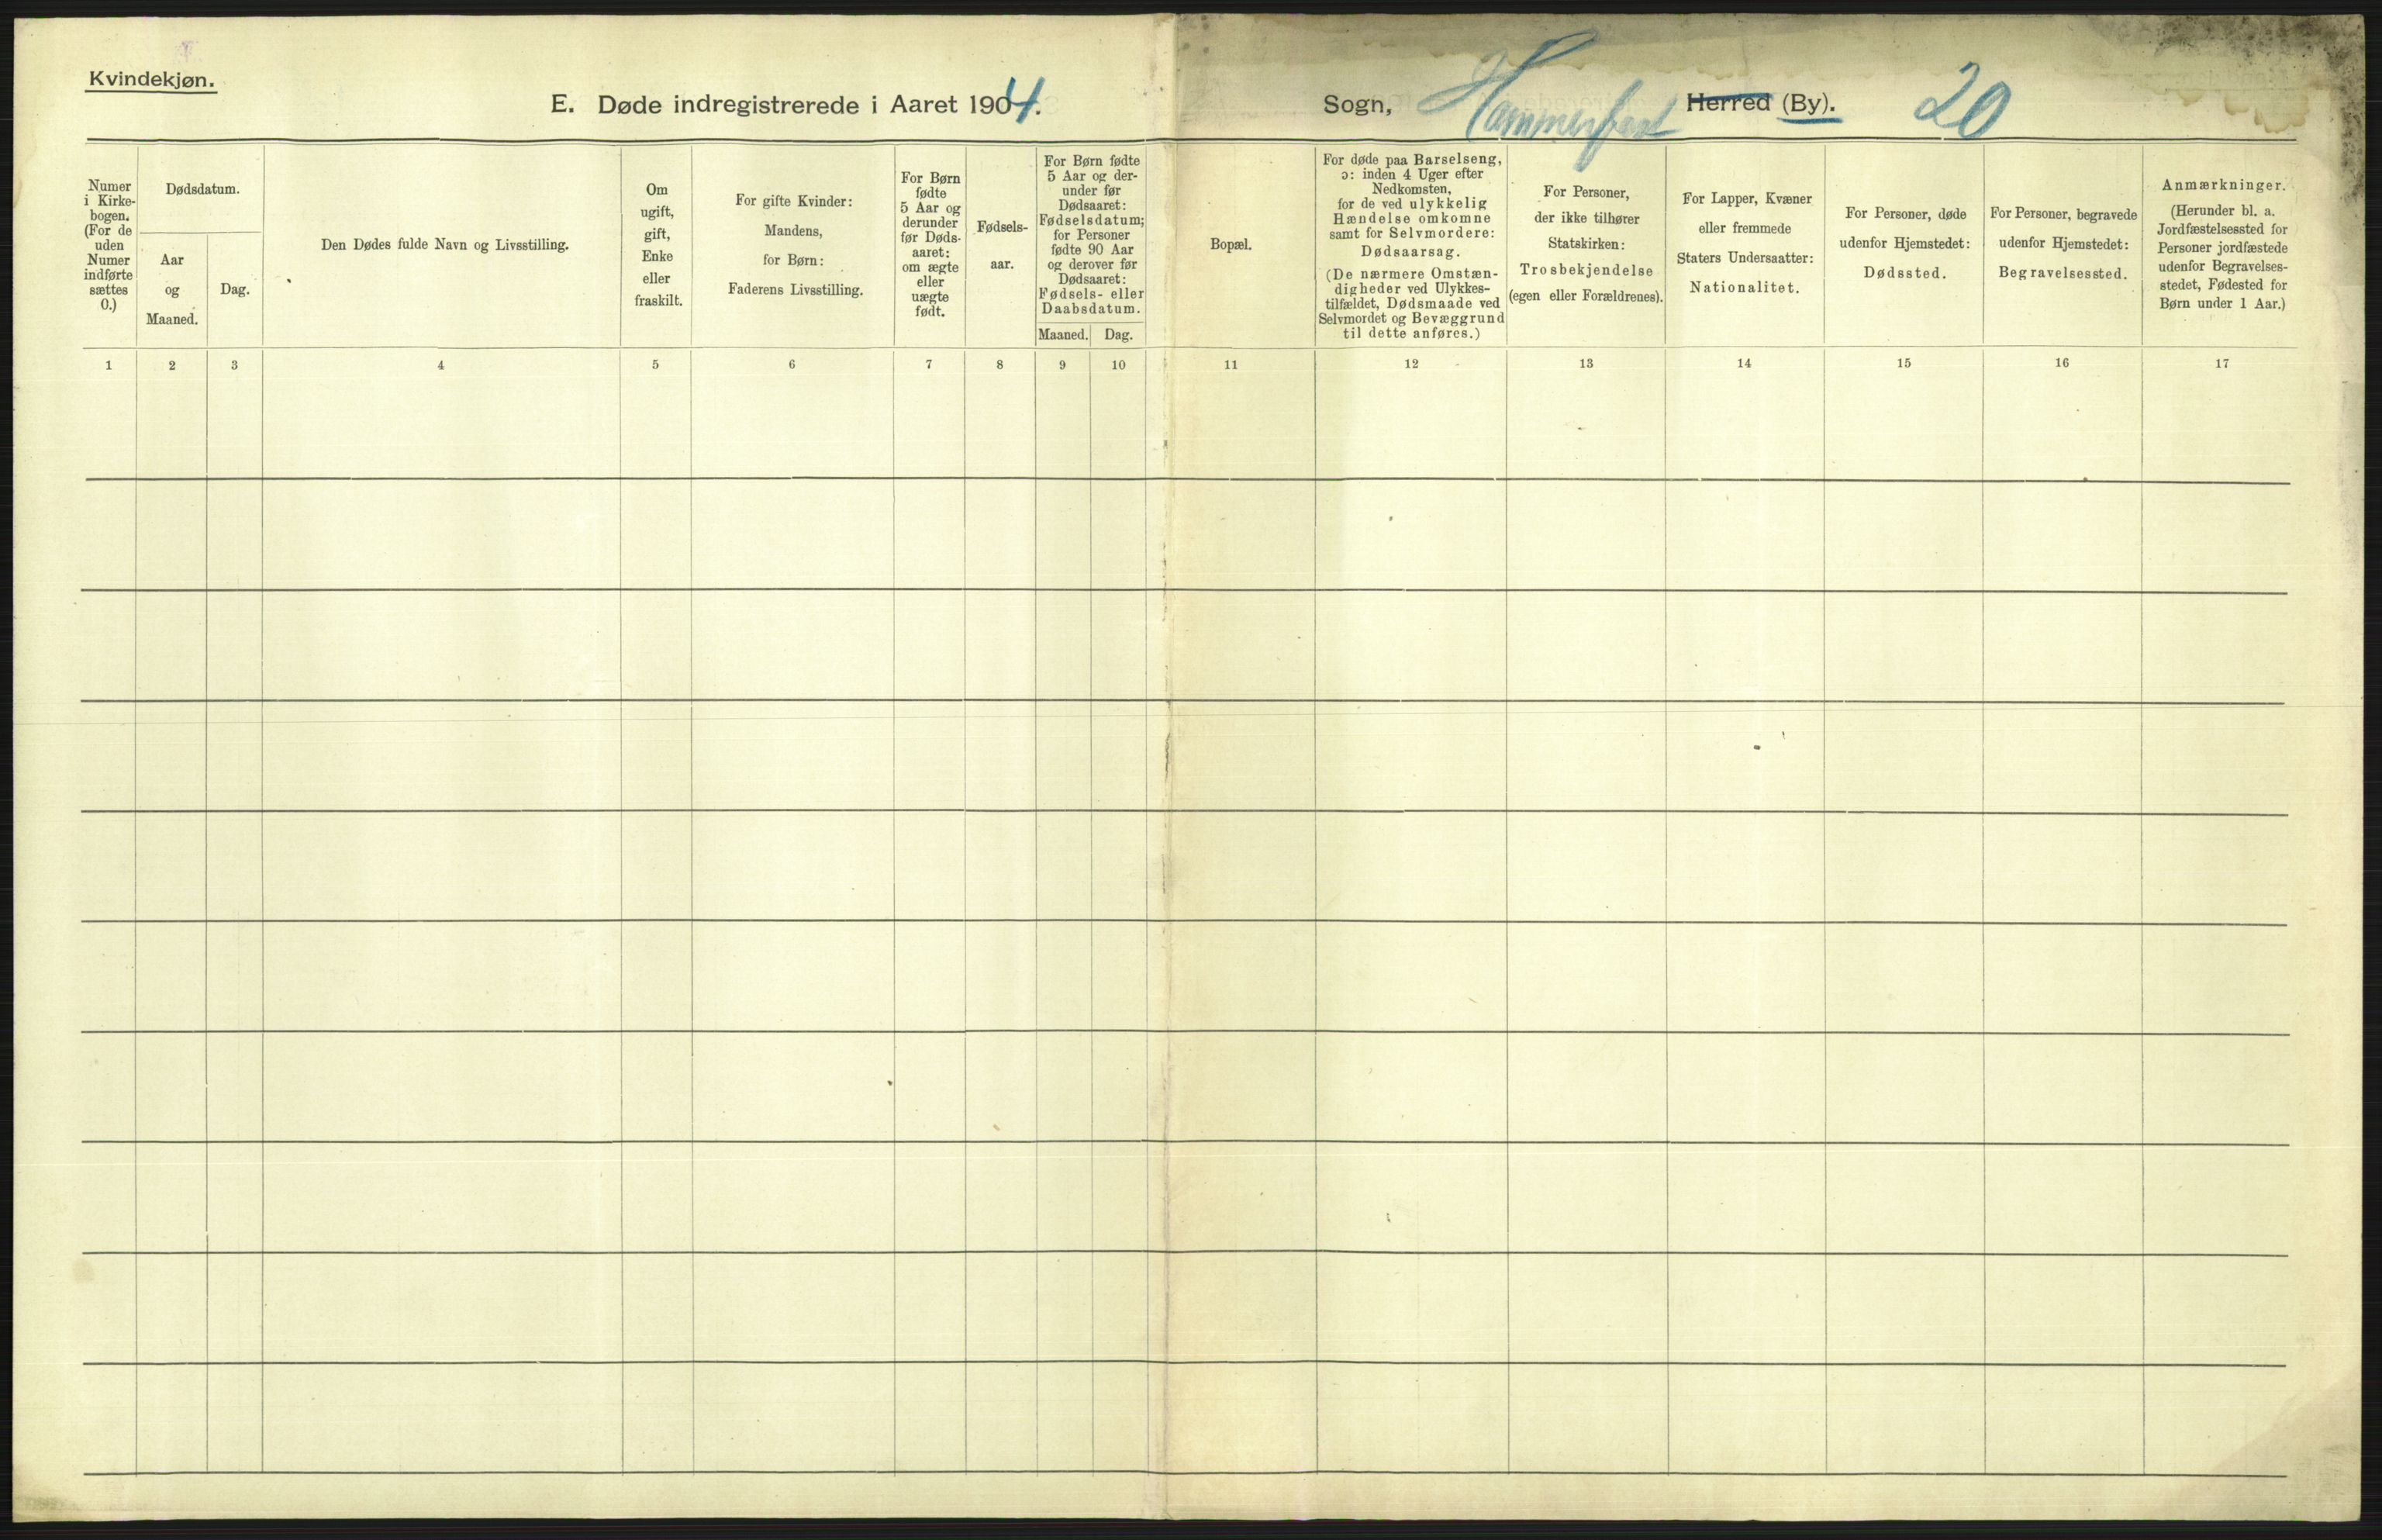 Kvindekjøn.
E. Døde indregistrerede i Aaret 1904. Sogn, Hammerfest Herred (By). 20
Numer
i Kirke-
bogen.
(For de
uden
Numer
indførte
sættes
0.)
Dødsdatum.
Aar
og
Maaned.
Dag.
Den Dødes fulde Navn og Livsstilling.
Om
ugift,
gift,
Enke
eller
fraskilt.
For gifte Kvinder:
Mandens,
for Børn:
Faderens Livsstilling.
For Børn
fødte
5 Aar og
derunder
før Døds-
aaret:
om ægte
eller
uægte
født.
Fødsels-
aar.
For Børn fødte
5 Aar og der-
under før
Dødsaaret:
Fødselsdatum;
for Personer
fødte 90 Aar
og derover før
Dødsaaret:
Fødsels- eller
Daabsdatum.
Maaned. Dag.
Bopæl.
For døde paa Barselseng,
ɔ: inden 4 Uger efter
Nedkomsten,
for de ved ulykkelig
Hændelse omkomne
samt for Selvmordere:
Dødsaarsag.
(De nærmere Omstæn-
digheder ved Ulykkes-
tilfældet, Dødsmaade ved
Selvmordet og Bevæggrund
til dette anføres.)
For Personer,
der ikke tilhører
Statskirken:
Trosbekjendelse
(egen eller Forældrenes).
For Lapper, Kvæner
eller fremmede
Staters Undersaatter:
Nationalitet.
For Personer, døde
udenfor Hjemstedet:
Dødssted.
For Personer, begravede
udenfor Hjemstedet:
Begravelsessted.
Anmærkninger.
(Herunder bl. a.
Jordfæstelsessted for
Personer jordfæstede
udenfor Begravelses-
stedet, Fødested for
Børn under 1 Aar.)
1 2 3 4 5 6 7 8 9 10 11 12 13 14 15 16 17